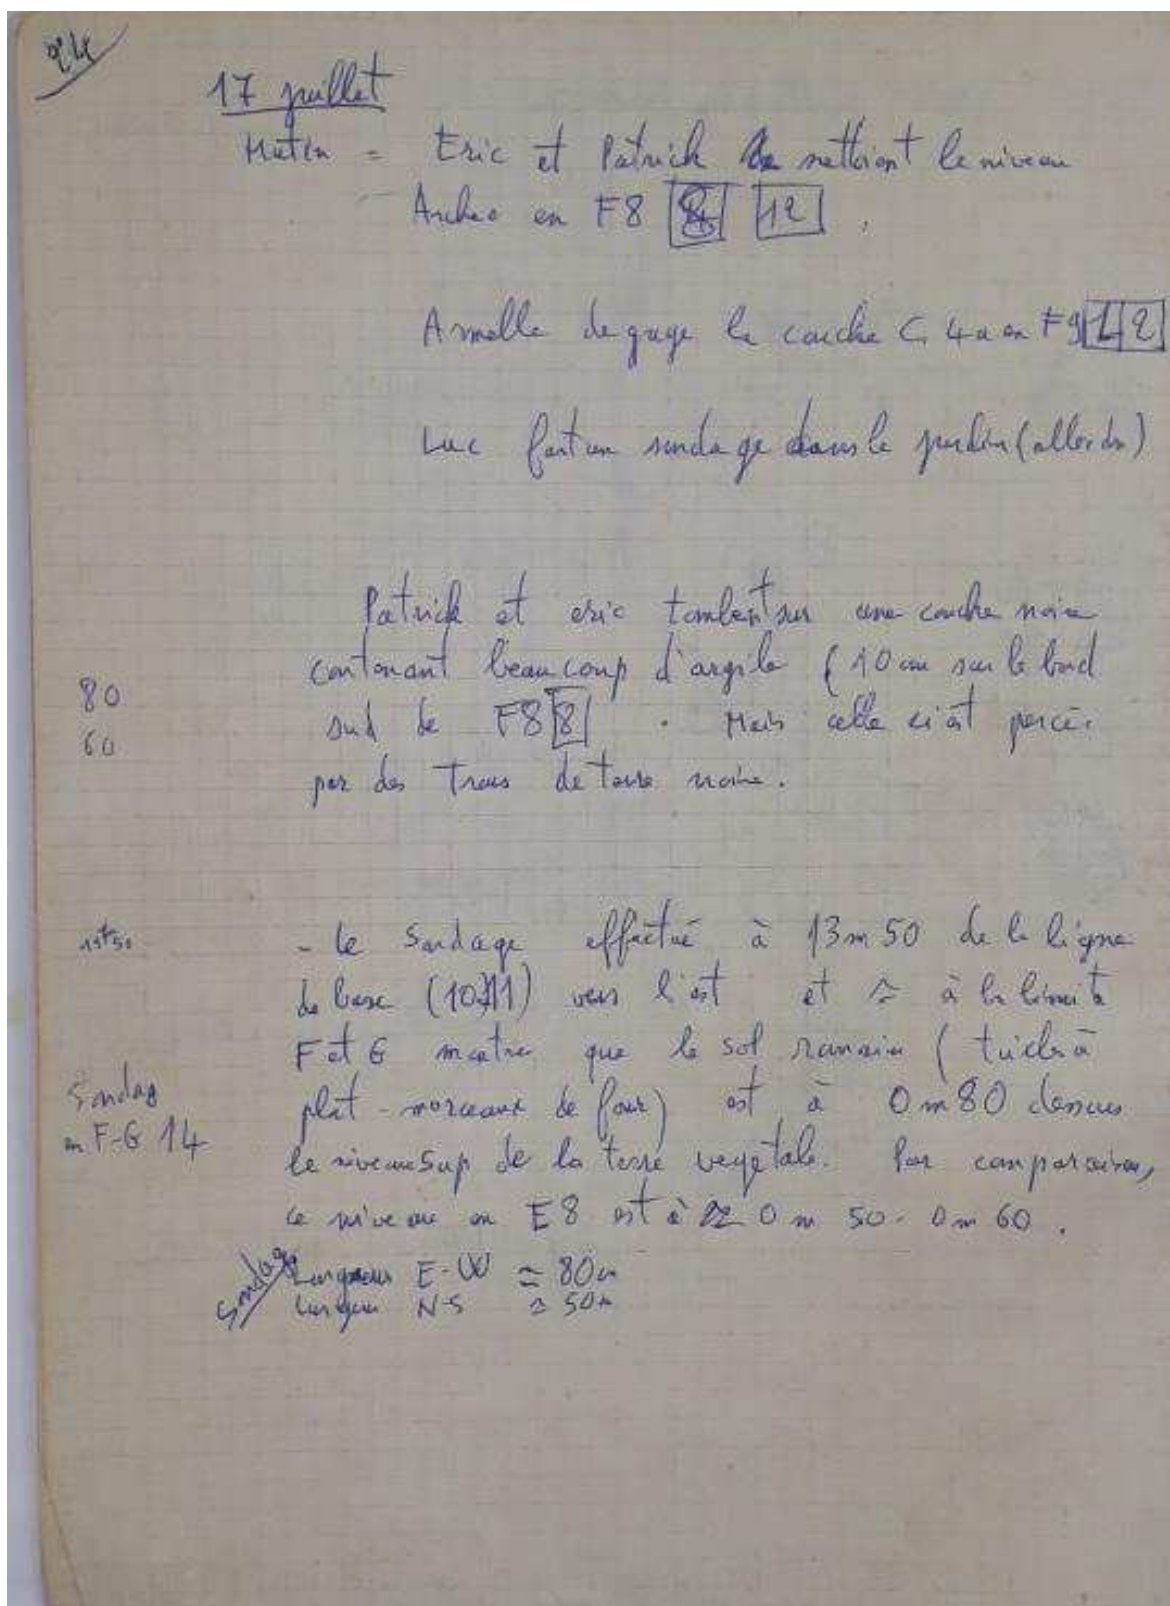 24
17 juillet
Matin = Eric et Patrick nettoient le niveau
Archeo en F8 8 12 .
Armelle degage la couche C 4a en F9 1 2
Luc fait un sondage dans le jardin (
Patrick et eric tombent sur une couche noire
contenant beaucoup d'argile ( 10 cm sur le bord
80
sud de F8 8 . Mais celle ci est percée
60
par des Trous de terre noire.
- le Sondage effectué à 13m 50 de la ligne
de base (10/11) vers l'est et ≃ à la limite
F et G montre que le sol romain ( tuiles à
plat - morceaux de four) est à 0m80 dessous
Sondag
en F-G 14
le niveau sup de la terre vegetale. Par comparaison,
ce niveau en E8 est à ≃ 0m 50 - 0m 60 .
Sondage
Longueur E-W ≃ 80
Largeur N-S ≃ 50